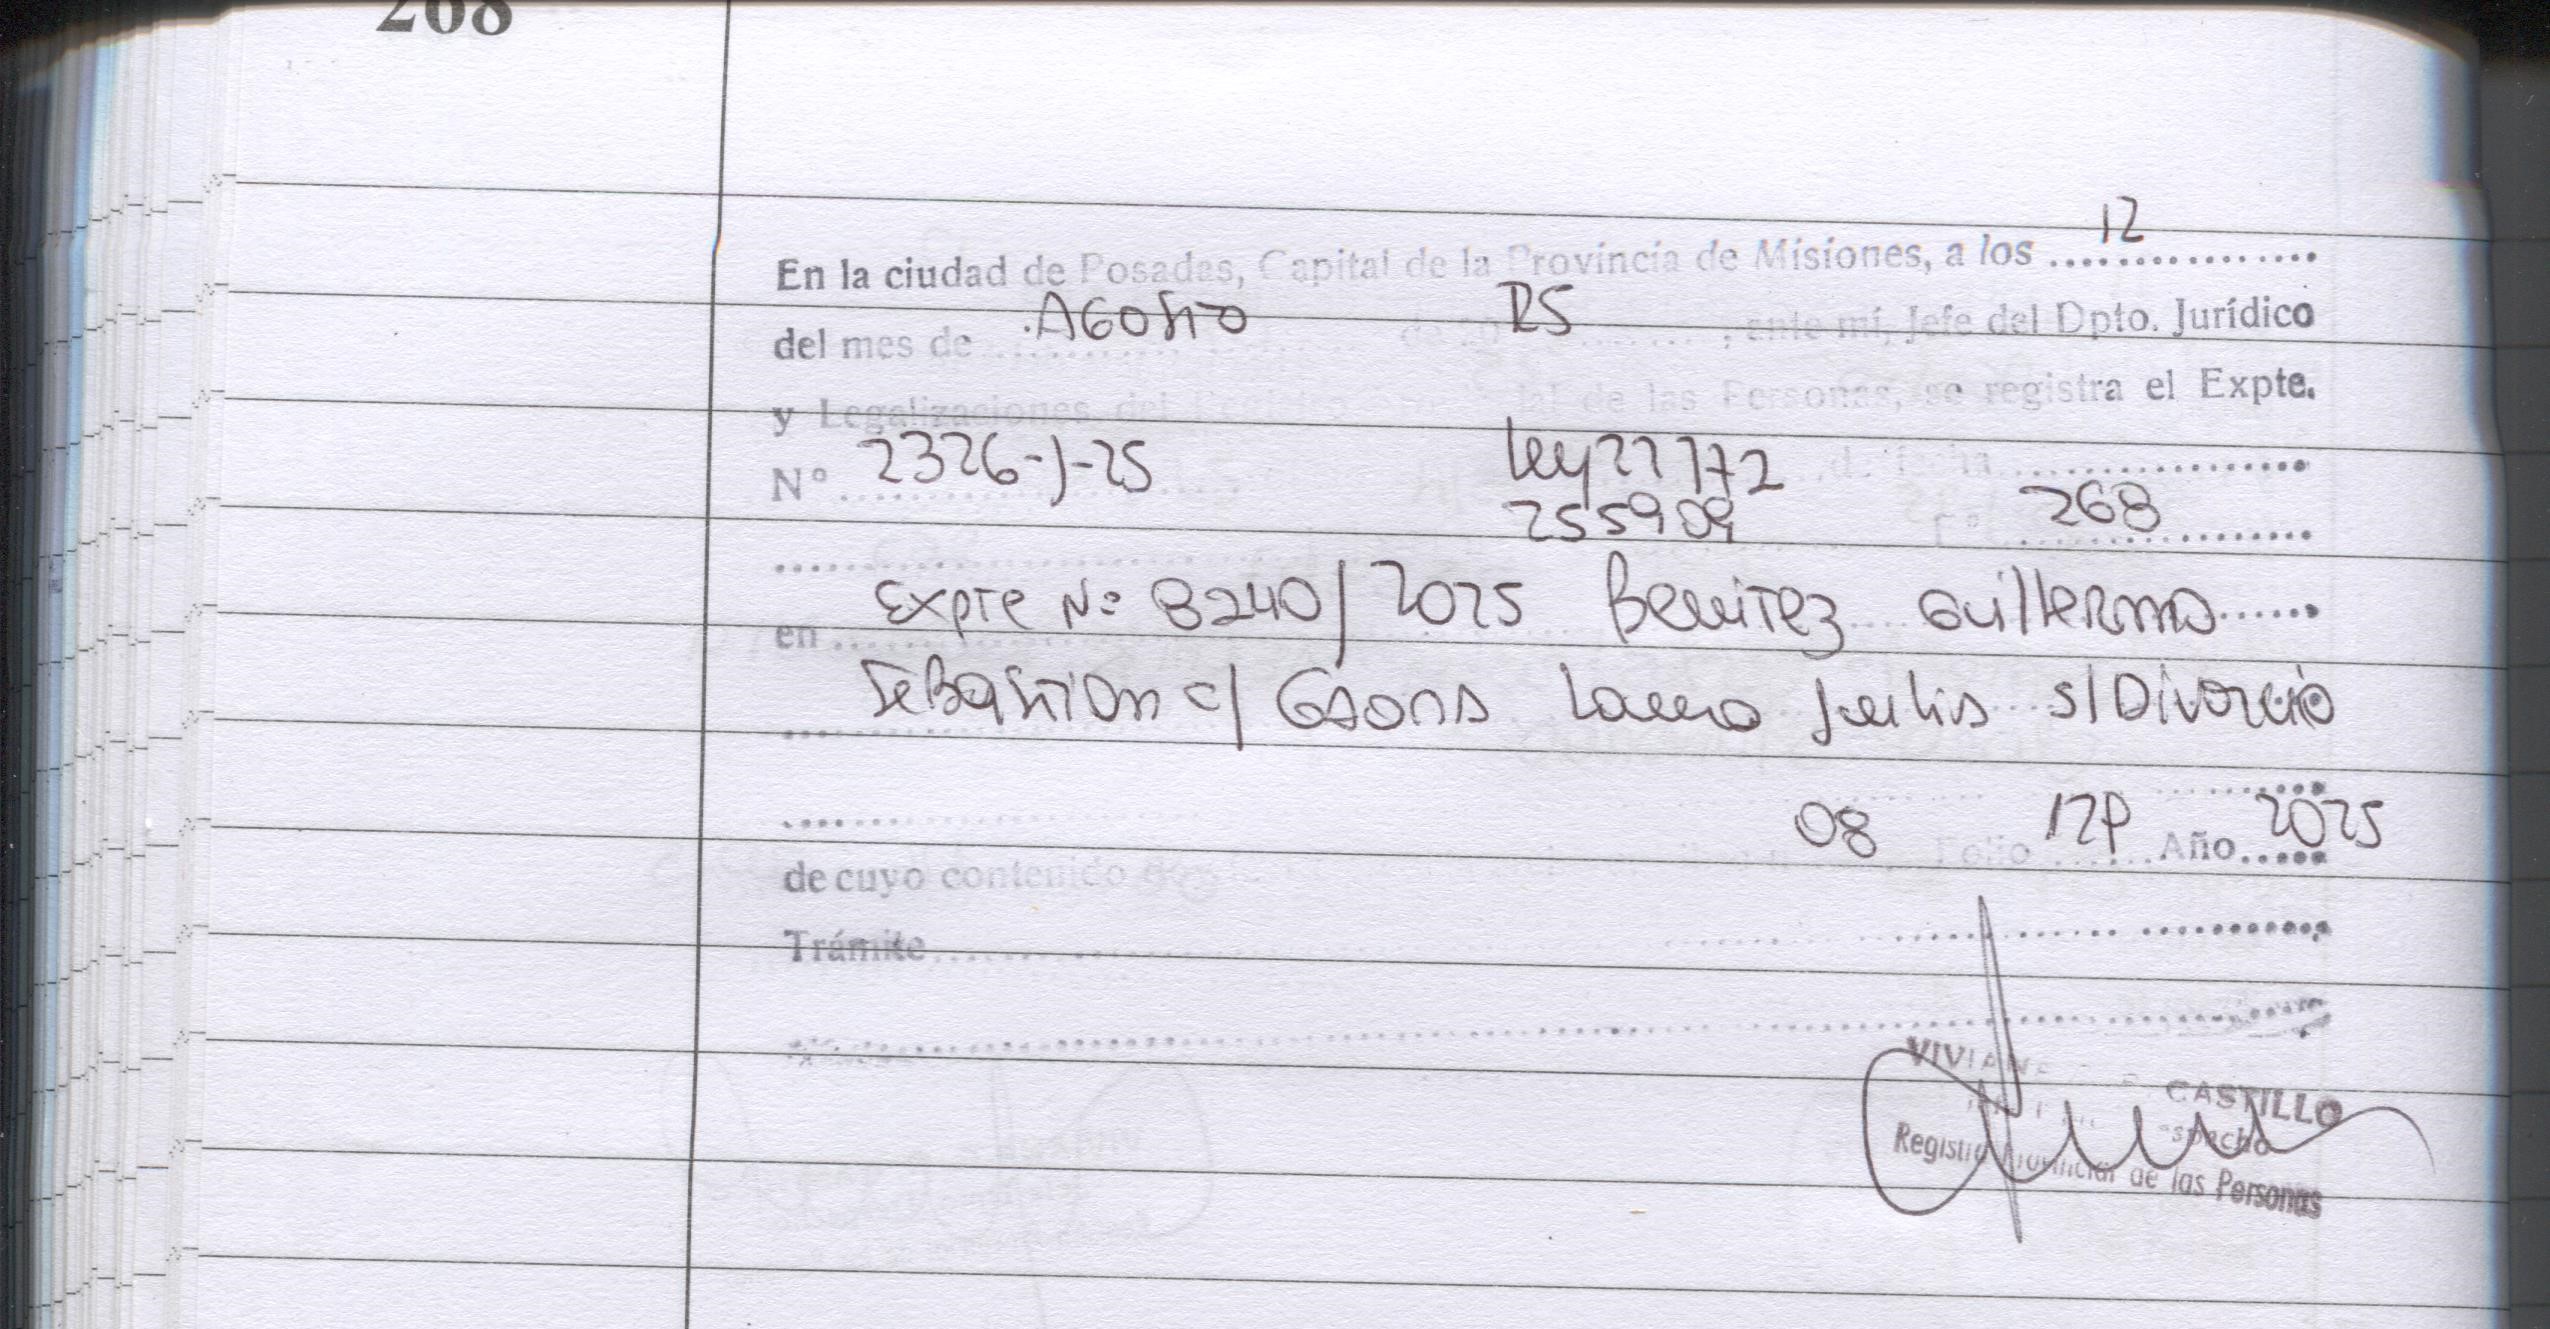 268
En la ciudad de Posadas, Capital de la Provincia de Misiones, a los 12
del mes de Agosto de 20 25, ante mí, Jefe del Dpto. Jurídico
y Legalizaciones del de las Personas, se registra el Expte.
Nº 2326-J-25 Ley 22172 de fecha
255909 Fº 268
en Expte Nº 8240/2025 Benitez Guillermo
Sebastian c/ Laura Julia s/Divorcio
de cuyo contenido 08 Folio 12P Año 2025
Trámite
VIVIANA CASTILLO
Despacho
Registro Provincial de las Personas